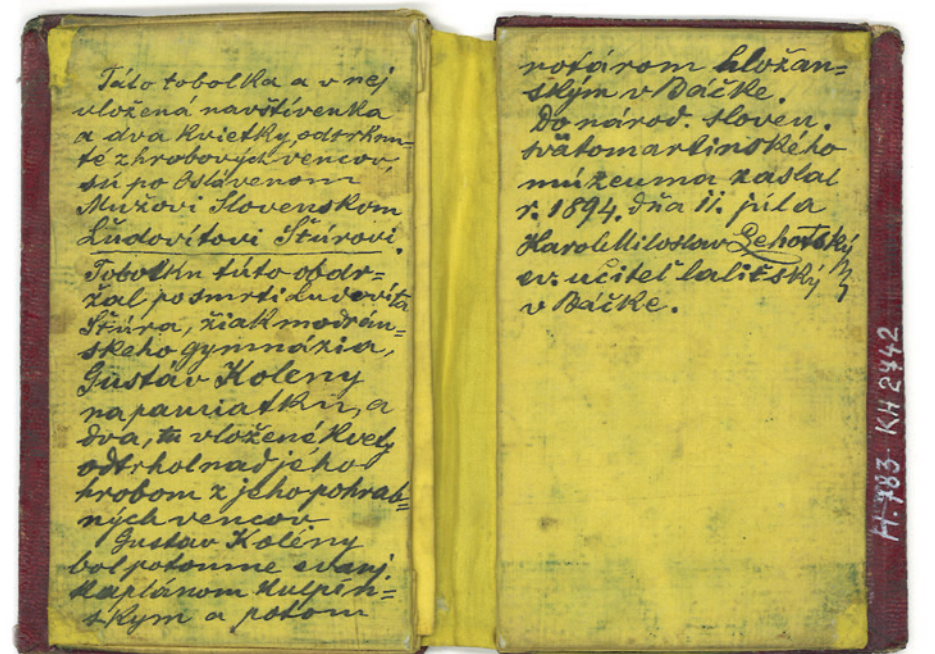 Táto tobolka a v nej
vložená navštívenka
a dva kvietky, odtrknu=
té z hrobových vencov,
sú po Oslávenom
Mužovi Slovenskom
Ľudovítovi Štúrovi.
Tobolku túto obdr=
žal po smrti Ľudovíta
Štúra, žiak modrán=
skeho gymnázia,
Gustáv Koleny
na pamiatku, a
dva, tu vložené kvety
odtrhol nad jeho
hrobom z jeho pohrab=
ných vencov
Gustav Kolény
bol potomne evanj
kaplánom kulpín=
skym a potom
notárom hložan=
ským v Báčke.
Do národ. sloven.
svätomartinského
múzeuma zaslal
r. 1894. dňa 11. júla
Karol Miloslav Lehotský
ev. učiteľ lalitský
v Báčke.
H.783 KH 2442